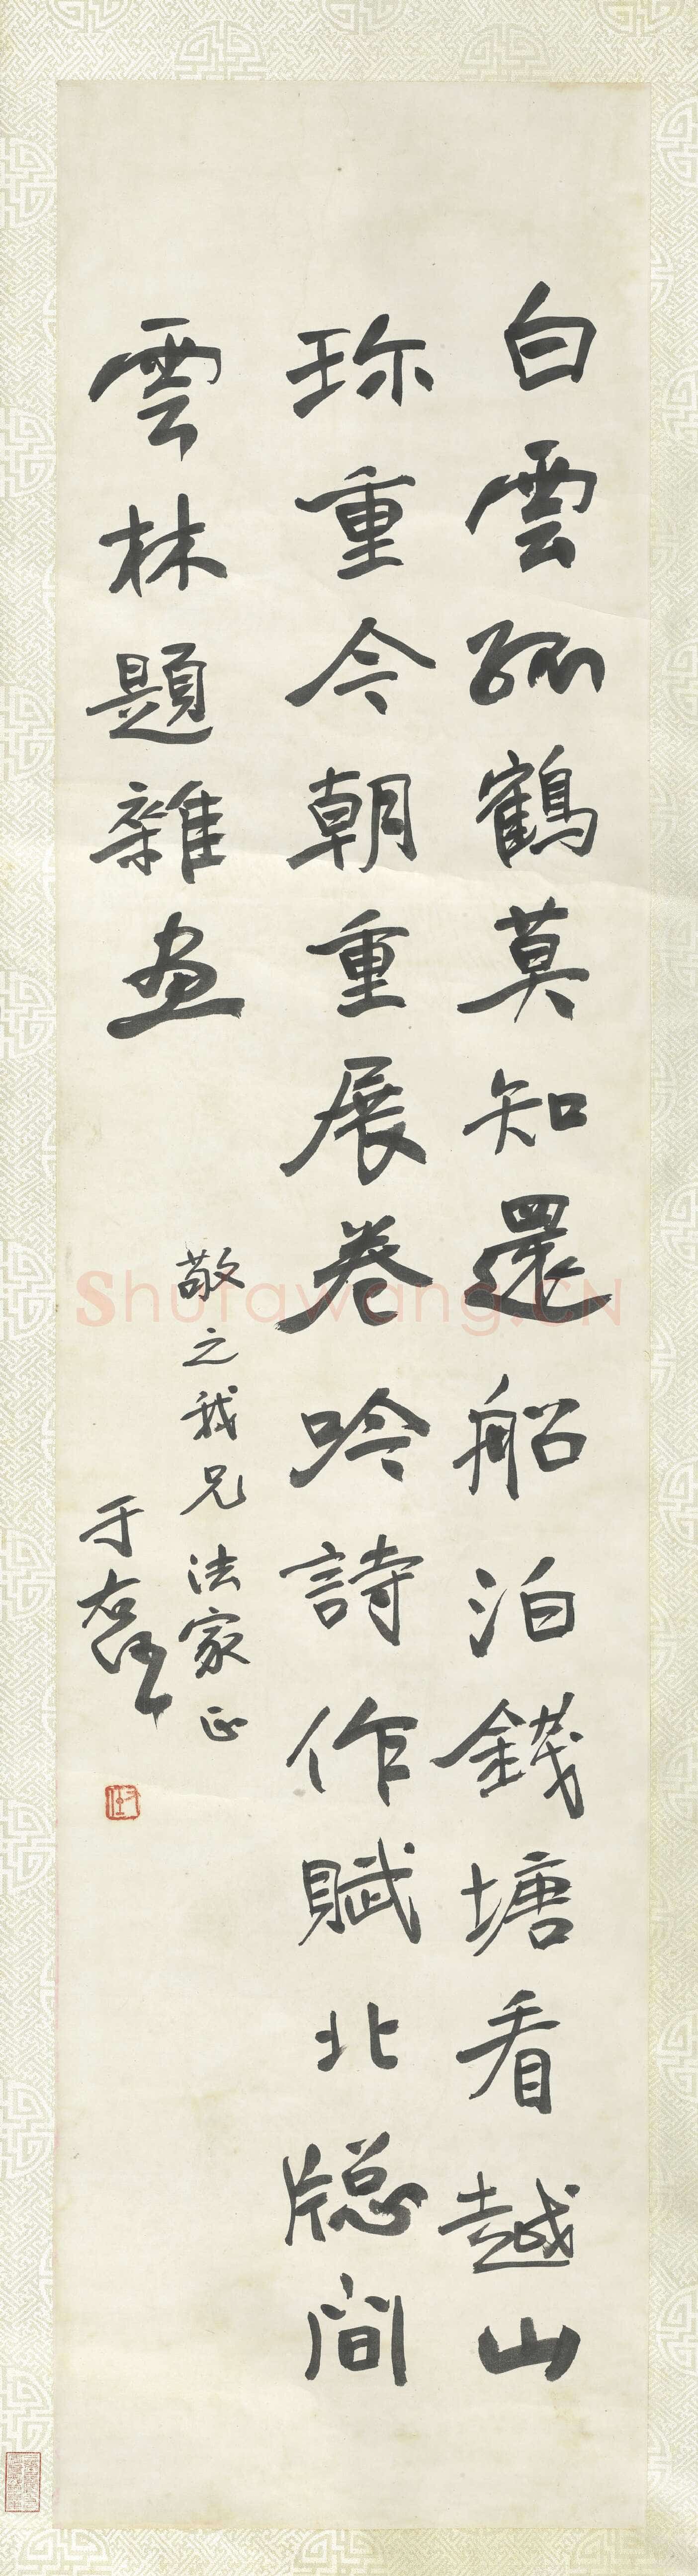 白雲孤鶴莫知還船泊錢塘看越山
珎重今朝重展卷吟詩作賦北牕間
雲林題雜畫
敬之我兄法家正
于右任
Shufawang.CN